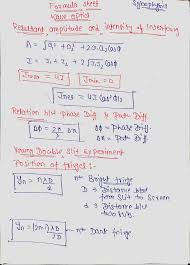 Formula sheet
Wave optics
Resultant amplitude and intensity of interference
A = √a₁² + a₂² + 2a₁a₂cosφ
I = I₁ + I₂ + 2√I₁I₂ cosφ
Imax = 4I Imin = 0
Inet = 4I cos²
Relation b/w phase Diff & Path Diff.
Δφ = 2π/λ Δx Δφ = phase diff.
Δx = Path Diff.
Young Double Slit Experiment
Position of fringes:-
yn = nλD/d nth Bright fringe
D → Distance
from slit to screen
d → distance b/w
two
yn = (2n-1)λD/2d nth Dark fringe